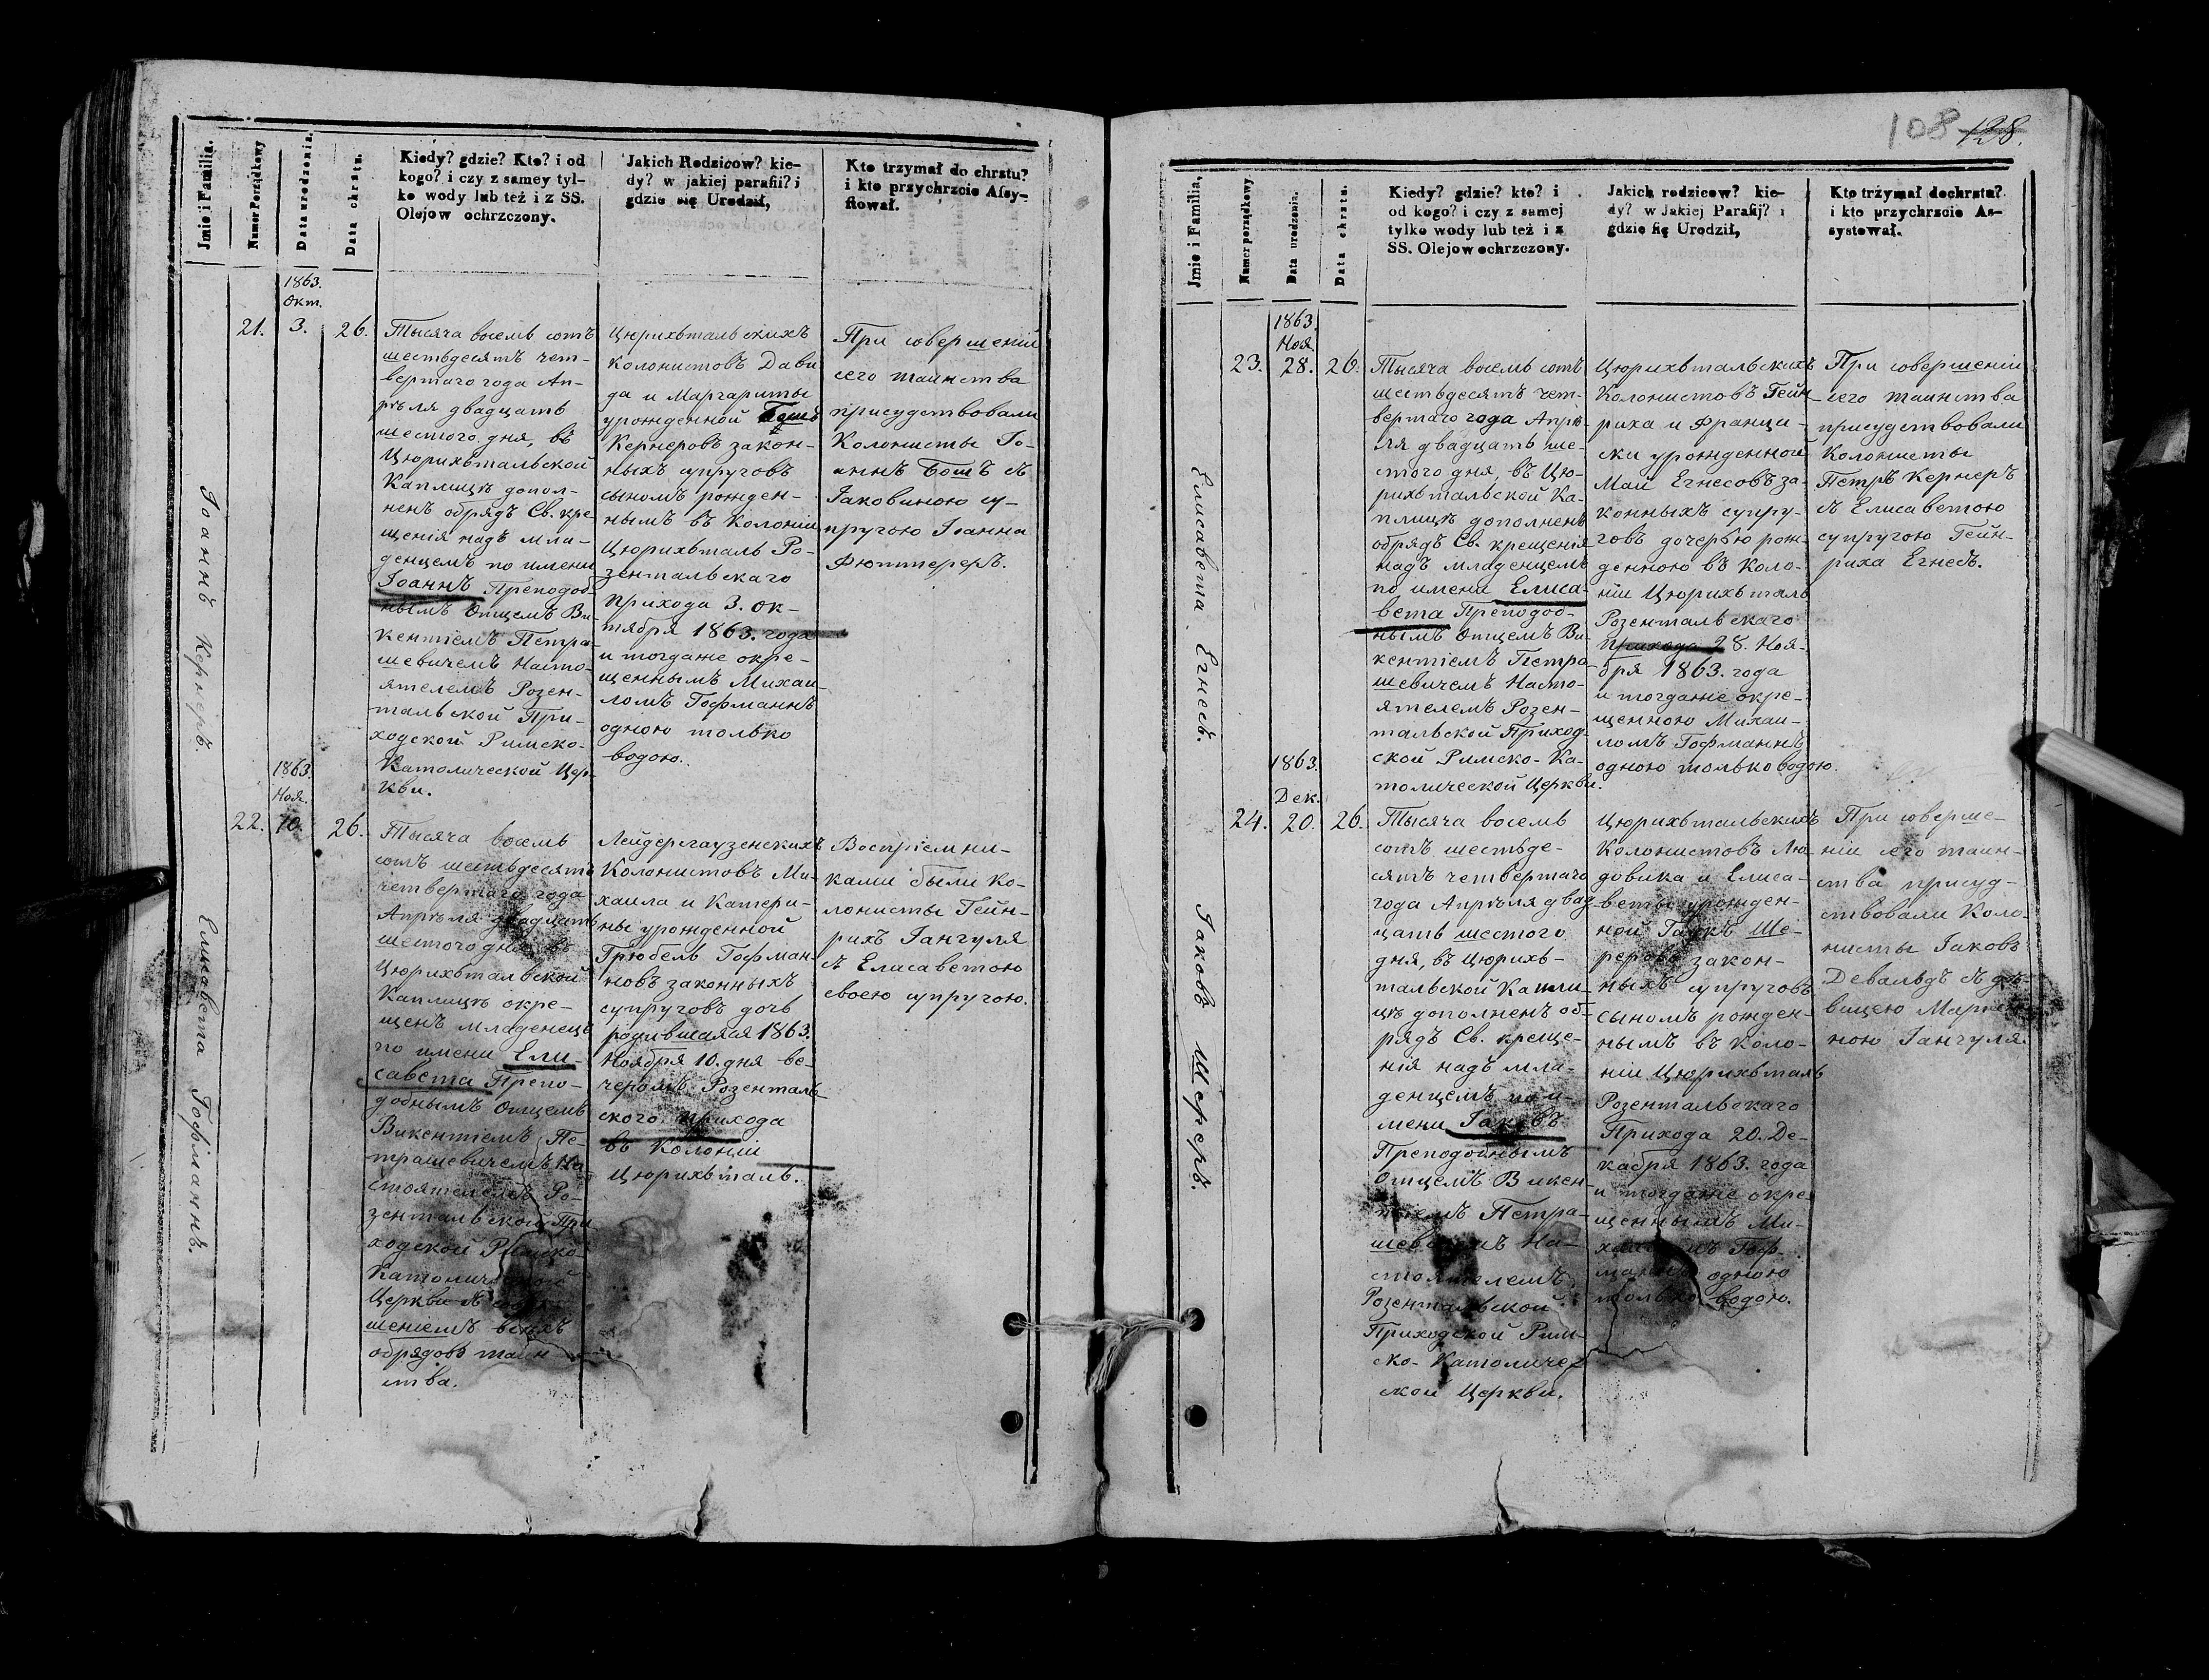 Jmie i Familia.
Numer Porządkowy
Data urodzenia.
Data chrztu.
Kiedy? gdzie? Kto? i od
kogo? i czy z samey tyl-
ko wody lub też i z SS.
Olejow ochrzczony.
Jakich Rodzicow? kie-
dy? w jakiej parafii? i
gdzie się Urodził,
Kto trzymał do chrztu?
i kto przychrzcie Assy-
stował.
Іоаннъ Кернеръ.
21.
1863.
Окт.
3.
26.
Тысяча восемь сотъ
шестьдесятъ чет-
вертаго года Ап-
рѣля двадцать
шестого дня, въ
Цюрихтальской
Каплицѣ допол-
ненъ обрядъ Св. кре-
щенія надъ мла-
денцемъ по имени
Іоаннъ Преподоб-
нымъ Отцемъ Ви-
кентіемъ Петра-
шевичемъ Насто-
ятелемъ Розен-
тальской При-
ходской Римско-
Католической Цер-
кви.
Цюрихтальскихъ
колонистовъ Дави
да и Маргариты
урожденной Бошъ
Кернеровъ закон-
ныхъ супруговъ
сыномъ рожден-
нымъ въ Колоніи
Цюрихталь Ро-
зентальскаго
прихода 3. Ок-
тября 1863. года
и тогдаже окре-
щеннымъ Михаи-
ломъ Гофманнъ
одною только
водою.
При совершеніи
сего таинства
присудствовали
Колонисты Іо-
аннъ Бошъ съ
Іаковиною су-
пругою Іоанна
Фюттереръ.
Елисавета Гофманнъ.
22.
1863.
Ноя.
10.
26.
Тысяча восемь
сотъ шестьдесятъ
четвертаго года
Апрѣля двадцать
шестого дня въ
Цюрихтальской
Каплицѣ окре-
щенъ младенецъ
по имени Ели-
савета Препо-
добнымъ Отцемъ
Викентіемъ Пе-
трашевичемъ На-
стоятелемъ Ро-
зентальской При
ходской Римско-
Католической
Церкви съ
шеніемъ всѣхъ
обрядовъ таин
ства.
Лейдергаузенскихъ
Колонистовъ Ми-
хаила и Катери-
ны урожденной
Грюбель Гофман-
новъ законныхъ
супруговъ дочь
родившаяся 1863.
Ноября 10. дня ве-
черомъ Розенталь-
ского прихода
въ Колоніи
Цюрихталь.
Воспріемни-
ками были Ко-
лонисты Гейн-
рихъ Гангуля
съ Елисаветою
своею супругою.
108 128.
Jmie i Familia.
Numer porządkowy
Data urodzenia.
Data chrztu.
Kiedy? gdzie? kto? i
od kogo? i czy z samej
tylko wody lub też i z
SS. Olejow ochrzczony.
Jakich rodzicow? kie-
dy? w Jakiej Parafij? i
gdzie się Urodził,
Kto trzymał dochrztu?
i kto przychrzcie As-
systował.
Елисавета Егнесъ.
23.
1863.
Ноя.
28.
26.
Тысяча восемь сотъ
шестьдесятъ чет-
вертаго года Апрѣ-
ля двадцать ше-
стого дня, въ Цю-
рихтальской Ка-
плицѣ дополненъ
обрядъ Св. крещенія
надъ младенцемъ
по имени Елиса-
вета Преподоб-
нымъ Отцемъ Ви-
кентіемъ Петра-
шевичемъ Насто-
ятелемъ Розен-
тальской Приход-
ской Римско-Ка-
толической Церкви.
Цюрихтальскихъ
Колонистовъ Гейн-
риха и Франци-
ски урожденной
Май Егнесовъ за-
конныхъ супру-
говъ дочерью рож-
денною въ Коло-
ніи Цюрихталь
Розентальскаго
прихода 28. Ноя-
бря 1863. года
и тогдаже окре-
щенною Михаи-
ломъ Гофманнъ
одною только водою.
При совершеніи
сего таинства
присудствовали
Колонисты
Петръ Кернеръ
съ Елисаветою
супругою Гейн-
риха Егнесъ.
Іаковъ Шереръ.
24.
1863.
Дек.
20.
26.
Тысяча восемь
сотъ шестьде-
сятъ четвертаго
года Апрѣля двад-
цать шестого
дня, въ Цюрих-
тальской Капли-
цѣ дополненъ об-
рядъ Св. креще-
нія надъ мла-
денцемъ по и-
мени Іаковъ
Преподобнымъ
Отцемъ Викен-
тіемъ Петра-
шевичемъ На-
стоятелемъ
Розентальской
Приходской Рим-
ско-Католичес-
кой Церкви.
Цюрихтальскихъ
Колонистовъ Лю-
довика и Елиса-
веты урожден-
ной Гаукъ Ше-
реровъ закон-
ныхъ супруговъ
сыномъ рожден-
нымъ въ Коло-
ніи Цюрихталь
Розентальскаго
Прихода 20. Де-
кабря 1863. года
и тогдаже окре
щеннымъ Ми-
хаиломъ Гоф-
маннъ одною
только водою.
При соверше-
ніи сего таин-
ства присуд-
ствовали Коло-
нисты Іаковъ
Девальдъ съ дѣ-
вицею
ною Гангуля.